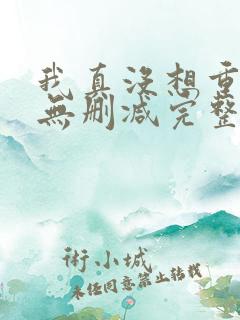 我真没想重
無删减完整
術小城
未经同意禁止转载